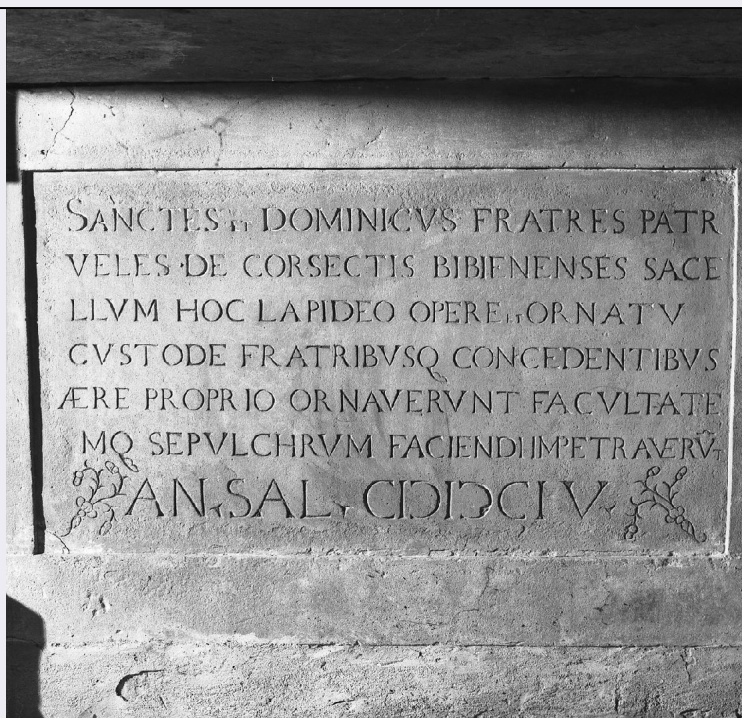 SANCTES ET DOMINICVS FRATRES PATR
VELES·DE CORSECTIS BIBIENENSES SACE
LLVM HOC LAPIDEO OPERE ET ORNATV
CVSTODE FRATRIBVSQ CONCEDENTIBVS
ÆRE PROPRIO ORNAVERVNT FACVLTATE
MQ SEPVLCHRVM FACIENDI IMPETRAVERV̄T
AN SAL CIƆIƆCIV